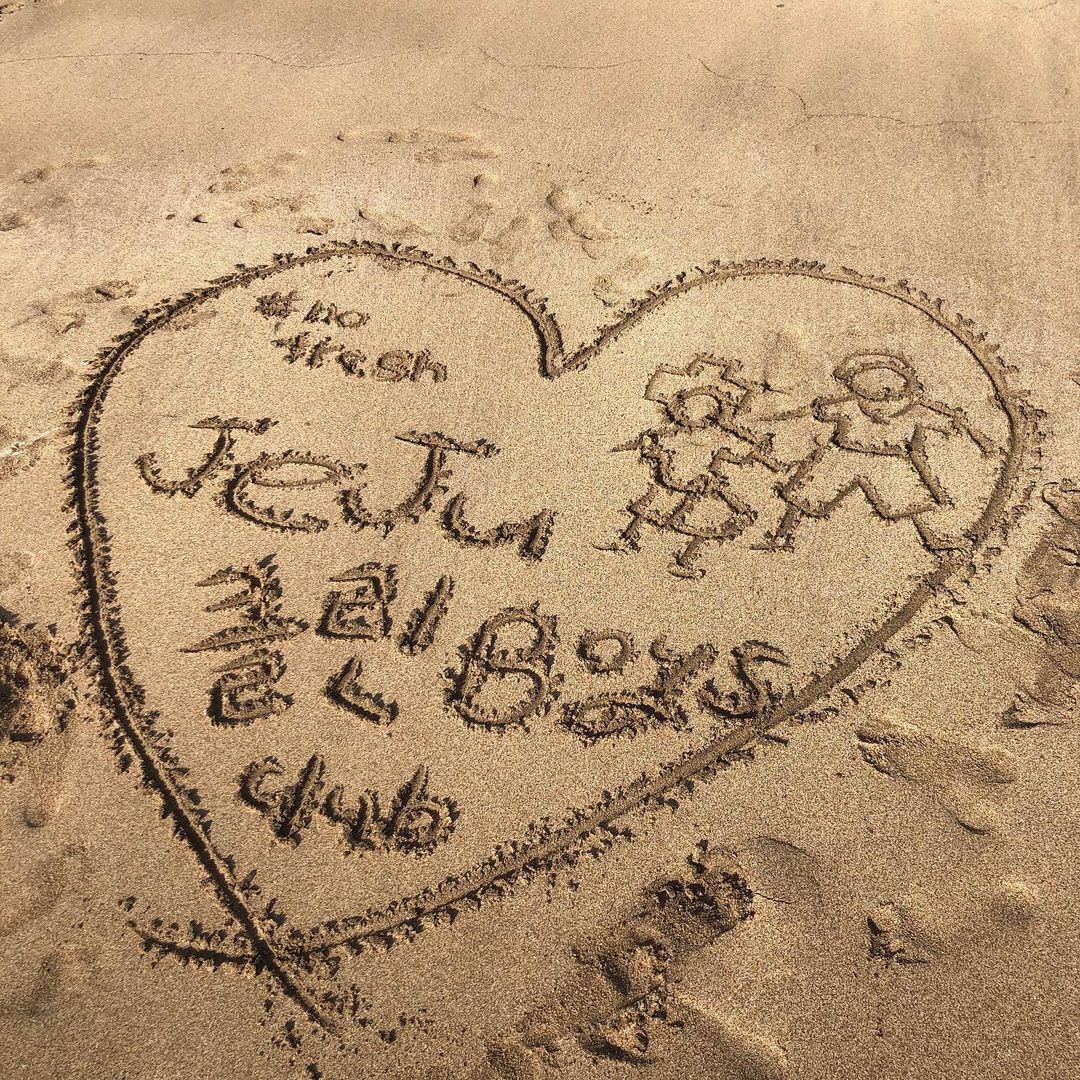 #no
trash
JeJu
클린 Boys
club